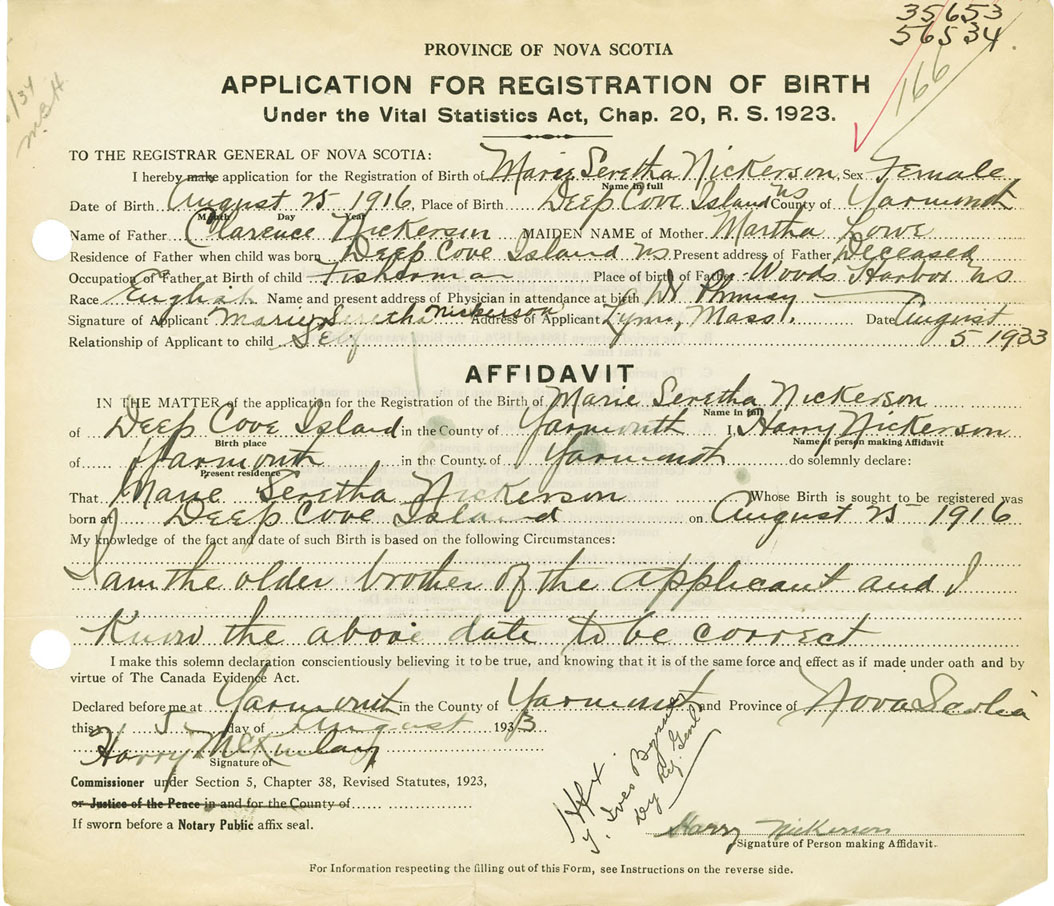 35653
56534
166
PROVINCE OF NOVA SCOTIA
APPLICATION FOR REGISTRATION OF BIRTH
Under the Vital Statistics Act, Chap. 20, R. S. 1923.
TO THE REGISTRAR GENERAL OF NOVA SCOTIA:
I hereby make application for the Registration of Birth of Marie Seretha Nickerson Sex Female
Name in full
Date of Birth August 25 1916 Place of Birth Deep Cove Island NS County of Yarmouth
Month Day Year
Name of Father Clarence Nickerson MAIDEN NAME of Mother Martha Lowe
Residence of Father when child was born Deep Cove Island NS Present address of Father Deceased
Occupation of Father at Birth of child Fisherman Place of birth of Father Woods Harbor NS
Race English Name and present address of Physician in attendance at birth Dr
Signature of Applicant Marie Seretha Nickerson Address of Applicant Lynn, Mass. Date August
Relationship of Applicant to child Self 5 1933
AFFIDAVIT
IN THE MATTER of the application for the Registration of the Birth of Marie Seretha Nickerson
Name in full
of Deep Cove Island in the County of Yarmouth I, Harry Nickerson
Birth place Name of person making Affidavit
of Yarmouth in the County of Yarmouth do solemnly declare:
Present residence
That Marie Seretha Nickerson Whose Birth is sought to be registered was
born at Deep Cove Island on August 25 1916
My knowledge of the fact and date of such Birth is based on the following Circumstances:
I am the older brother of the applicant and I
know the above date to be correct
I make this solemn declaration conscientiously believing it to be true, and knowing that it is of the same force and effect as if made under oath and by
virtue of The Canada Evidence Act.
Declared before me at Yarmouth in the County of Yarmouth and Province of Nova Scotia
this 5 day of August 1933
Harry McKinlay
Signature of
Commissioner under Section 5, Chapter 38, Revised Statutes, 1923,
or Justice of the Peace in and for the County of
If sworn before a Notary Public affix seal.
Hfx
Dy Reg. Genl
Harry Nickerson
Signature of Person making Affidavit.
For Information respecting the filling out of this Form, see Instructions on the reverse side.